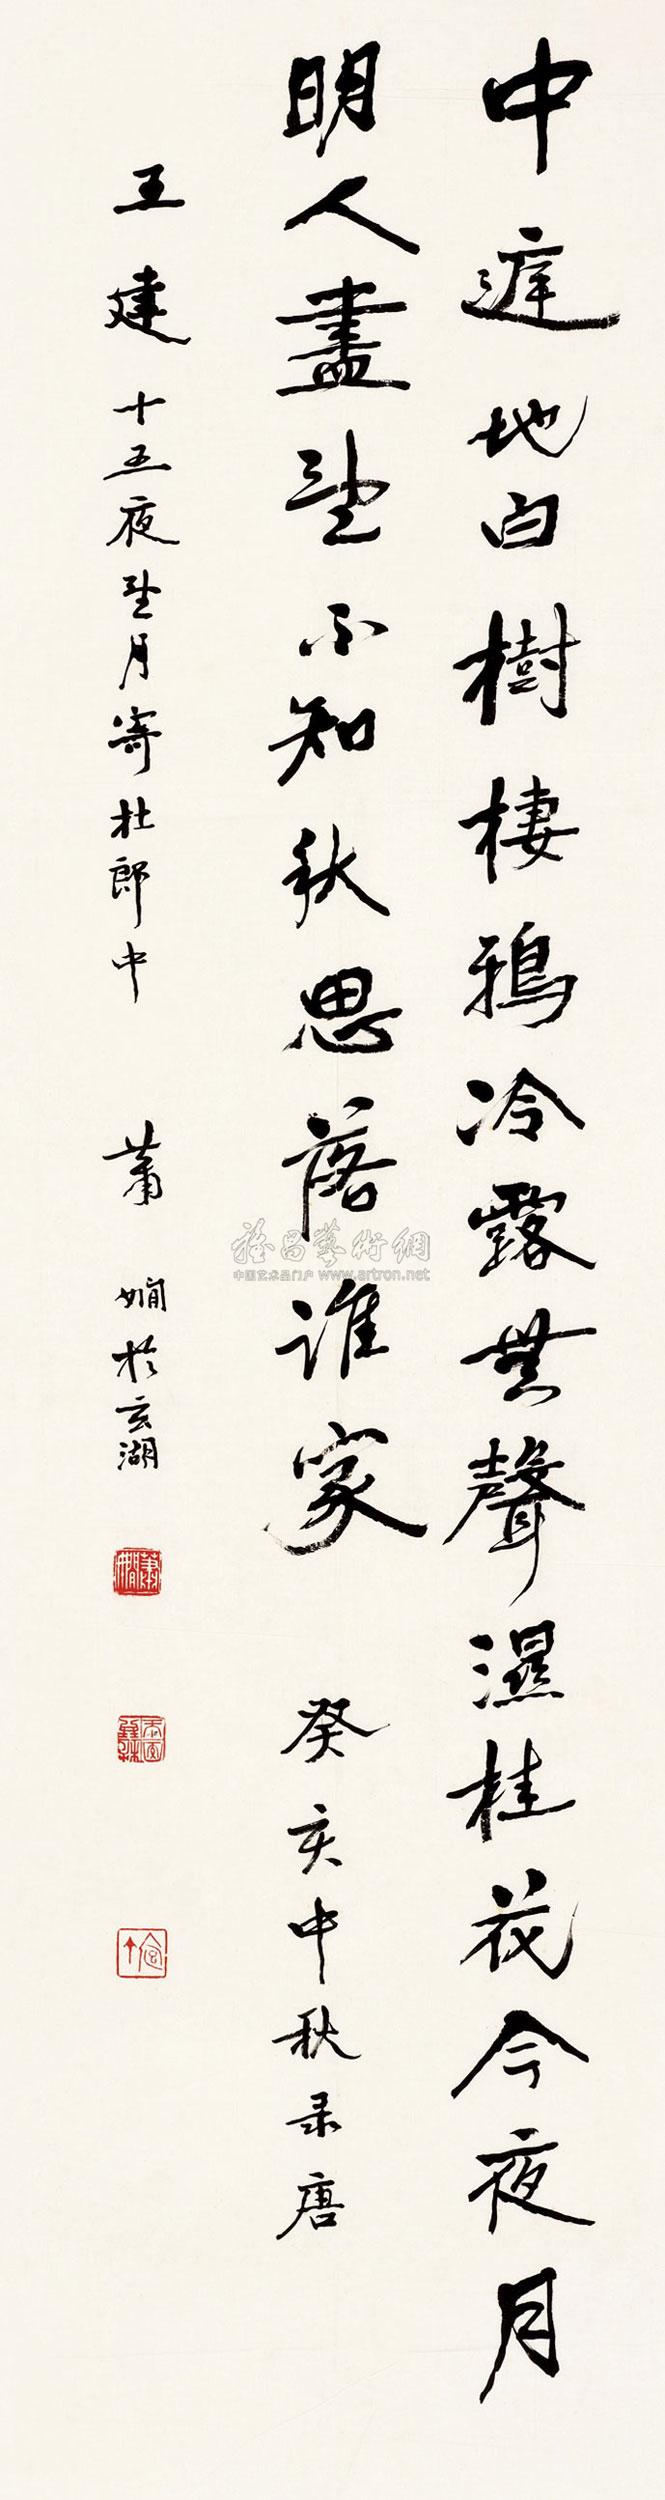 中庭地白樹棲鴉冷露無聲濕桂花今夜月
明人盡望不知秋思落誰家 癸亥中秋录唐
王建十五夜望月寄杜郎中 蕭嫻於玄湖
蕭嫻
雅昌藝術網
中国艺术品门户 www.artron.net